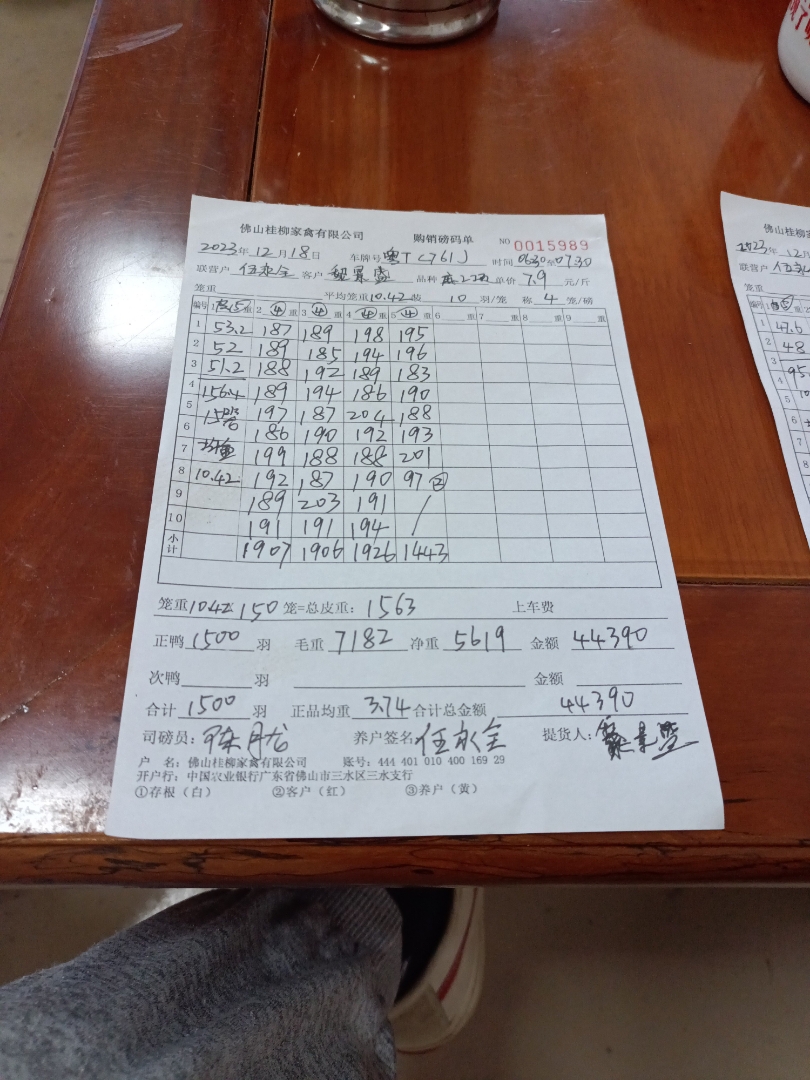 佛山桂柳家禽有限公司 购销磅码单 NO 0015989
2023年12月18日 车牌号 粤TC761J 时间 0630至0730
联营户 任永全 客户 黎景盛 品种 单价 7.9 元/斤
笼重 平均笼重10.42 装 10 羽/笼 称 4 笼/磅
编号 1 ⑮ 重 2 ④ 重 3 ④ 重 4 ④ 重 5 ④ 重 6 重 7 重 8 重 9 重
1 53.2 187 189 198 195
2 52 189 185 194 196
3 51.2 188 192 189 183
4 156.4 189 194 186 190
5 197 187 204 188
6 186 190 192 193
7 199 188 188 201
8 10.42 192 187 190 97 ②
9 189 203 191 /
10 191 191 194 /
小计 1907 1906 1926 1443
笼重10.42 150 笼=总皮重: 1563 上车费
正鸭 1500 羽 毛重 7182 净重 5619 金额 44390
次鸭 羽 金额
合计 1500 羽 正品均重 3.74 合计总金额 44390
司磅员: 养户签名 任永全 提货人: 黎景盛
户 名: 佛山桂柳家禽有限公司 账号: 444 401 010 400 169 29
开户行: 中国农业银行广东省佛山市三水区三水支行
①存根(白) ②客户(红) ③养户(黄)
佛山桂柳家禽
2023年12月
联营户
笼重
编号
1 47.6
2 48
3 95.
4
5
6
7
8
9
10